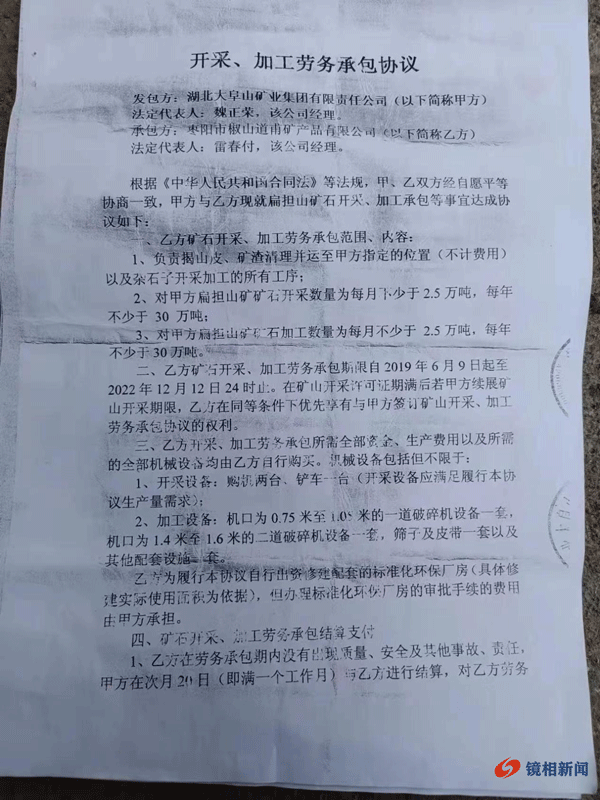 开采、加工劳务承包协议
发包方：湖北大阜山矿业集团有限责任公司（以下简称甲方）
法定代表人：魏正荣，该公司经理。
承包方：枣阳市椒山道甫矿产品有限公司（以下简称乙方）
法定代表人：雷春付，该公司经理。
根据《中华人民共和国合同法》等法规，甲、乙双方经自愿平等
协商一致，甲方与乙方现就扁担山矿石开采、加工承包等事宜达成协
议如下：
一、乙方矿石开采、加工劳务承包范围、内容：
1、负责揭山皮、矿渣清理并运至甲方指定的位置（不计费用）
以及杂石子开采加工的所有工序；
2、对甲方扁担山矿矿石开采数量为每月不少于 2.5 万吨，每年
不少于 30 万吨；
3、对甲方扁担山矿矿石加工数量为每月不少于 2.5 万吨，每年
不少于 30 万吨。
二、乙方矿石开采、加工劳务承包期限自 2019 年 6 月 9 日起至
2022 年 12 月 12 日 24 时止。在矿山开采许可证期满后若甲方续展矿
山开采期限，乙方在同等条件下优先享有与甲方签订矿山开采、加工
劳务承包协议的权利。
三、乙方开采、加工劳务承包所需全部资金、生产费用以及所需
的全部机械设备均由乙方自行购买。机械设备包括但不限于：
1、开采设备：购机两台、铲车一台（开采设备应满足履行本协
议生产量需求）；
2、加工设备：机口为 0.75 米至 1.05 米的一道破碎机设备一套，
机口为 1.4 米至 1.6 米的二道破碎机设备一套，筛子及皮带一套以及
其他配套设施一套。
乙方为履行本协议自行出资修建配套的标准化环保厂房（具体修
建实际使用面积为依据），但办理标准化环保厂房的审批手续的费用
由甲方承担。
四、矿石开采、加工劳务承包结算支付
1、乙方在劳务承包期内没有出现质量、安全及其他事故、责任，
甲方在次月 20 日（即满一个工作月）与乙方进行结算，对乙方劳务
镜相新闻